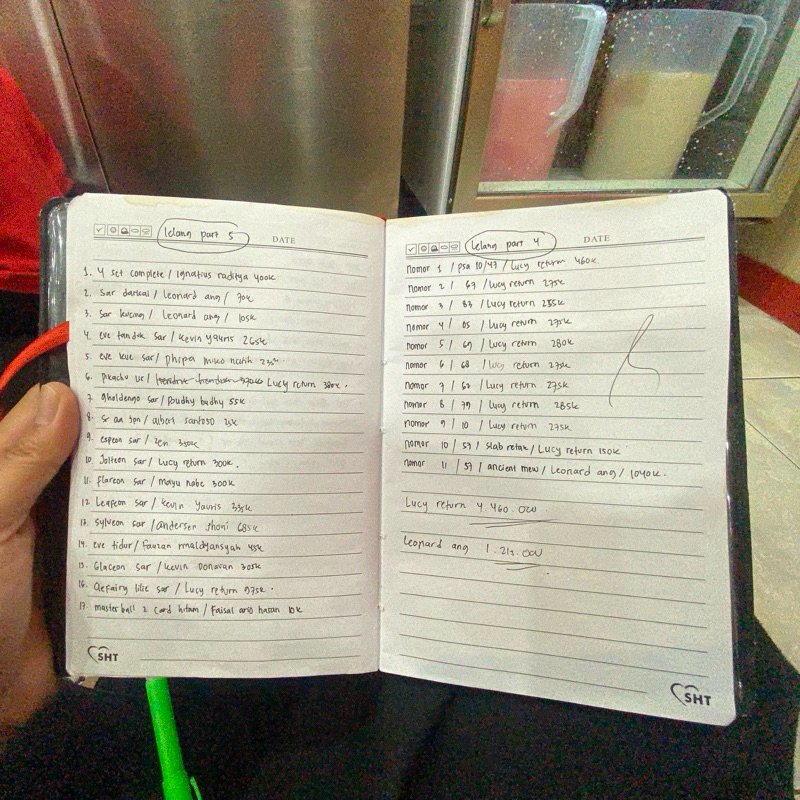 lelang part 5
DATE
1. 4 set complete / Ignatius raditya 400k
2. Sar darkrai / Leonard ang / 70k
3. Sar kucing / Leonard ang / 105k
4. eve tanduk sar / kevin yauris 265k
5. eve kue sar / phipa
6. pikachu ur / Lucy return 380k.
7. gholdengo sar / poudhy budhy 55k
8. Sr an jpn / albert santoso 25k
9. espeon sar / zen 350k
10. Jolteon sar / Lucy return 300k.
11. flareon sar / mayu nobe 300k
12. Leafeon sar / kevin yauris 335k
13. Sylveon sar / andersen jhoni 685k
14. eve tidur / fauzan 45k
15. Glaceon sar / kevin Donavan 305k
16. Clefairy lilie sar / Lucy return 975k.
17. master ball 2 card hitam / Faisal arib hasan 10k
SHT
lelang part 4
DATE
nomor 1 / psa 10/47 / Lucy return 460k
nomor 2 / 67 / Lucy return 275k
nomor 3 / 83 / Lucy return 285k
nomor 4 / 05 / Lucy return 275k
nomor 5 / 69 / Lucy return 280k
nomor 6 / 68 / Lucy return 275k
nomor 7 / 62 / Lucy return 275k
nomor 8 / 79 / Lucy return 285k
nomor 9 / 10 / Lucy return 275k
nomor 10 / 59 / slab retak / Lucy return 150k
nomor 11 / 59 / ancient mew / Leonard ang / 1040k.
Lucy return 4.460.000
Leonard ang 1.215.000
SHT